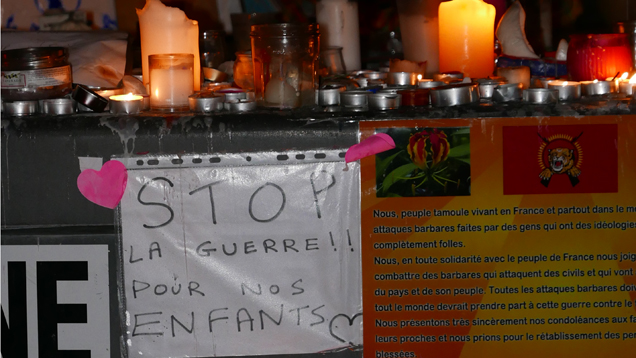 STOP
LA GUERRE!!
POUR NOS
ENFANTS
NE
Nous, peuple tamoule vivant en France et partout dans le
attaques barbares faites par des gens qui ont des idéologies
complètement folles.
Nous, en toute solidarité avec le peuple de France nous
combattre des barbares qui attaquent des civils et qui vont
du pays et de son peuple. Toutes les attaques barbares
tout le monde devrait prendre part à cette guerre contre le
Nous présentons très sincèrement nos condoléances aux
leurs proches et nous prions pour le rétablissement des
blessées.